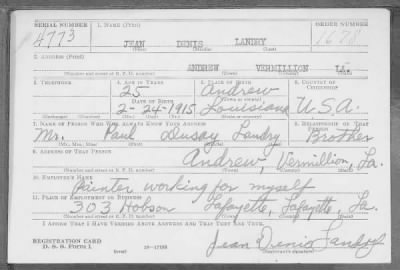 SERIAL NUMBER 1. NAME (Print) ORDER NUMBER
4773 JEAN DENIS LANDRY 1678
(First) (Middle) (Last)
2. ADDRESS (Print)
ANDREW VERMILLION LA.
(Number and street or R. F. D. number) (Town) (County) (State)
3. TELEPHONE 4. AGE IN YEARS 5. PLACE OF BIRTH 6. COUNTRY OF CITIZENSHIP
25 Andrew
DATE OF BIRTH (Town or county)
2-24-1915 Louisiana U.S.A.
7. NAME OF PERSON WHO WILL ALWAYS KNOW YOUR ADDRESS 8. RELATIONSHIP OF THAT PERSON
Mr. Paul Dusay Landry Brother
(Mr., Mrs., Miss) (First) (Middle) (Last)
9. ADDRESS OF THAT PERSON
Andrew, Vermillion, La.
(Number and street or R. F. D. number) (Town) (County) (State)
10. EMPLOYER'S NAME
Painter working for myself
11. PLACE OF EMPLOYMENT OR BUSINESS
303 Hobson Lafayette, Lafayette, La.
(Number and street or R. F. D. number) (Town) (County) (State)
I AFFIRM THAT I HAVE VERIFIED ABOVE ANSWERS AND THAT THEY ARE TRUE.
REGISTRATION CARD
D. S. S. Form 1 (over) Jean Denis Landry